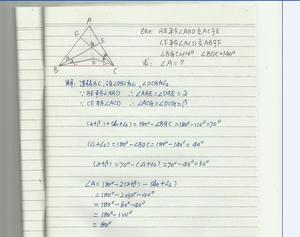 A
F
E
G
D
B
C
BE平分∠ABD 交AC于E
CF平分∠ACD 交AB于F
∠BGC=110° ∠BDC=140°
求: ∠A=?
∵BE平分∠ABD ∴∠ABE=∠DBE=2
∵CF平分∠ACD ∴∠ACG=∠DCG=β
(2+β)+(∠1+∠2)=180°-∠BGC=180°-110°=70°
(∠1+∠2)=180°-∠BDC=180°-140°=40°
(2+β)=70°-(∠1+∠2)=70°-40°=30°
∠A=180°-2(2+β)-(∠1+∠2)
=180°-2×30°-40°
=180°-60°-40°
=180°-100°
=80°